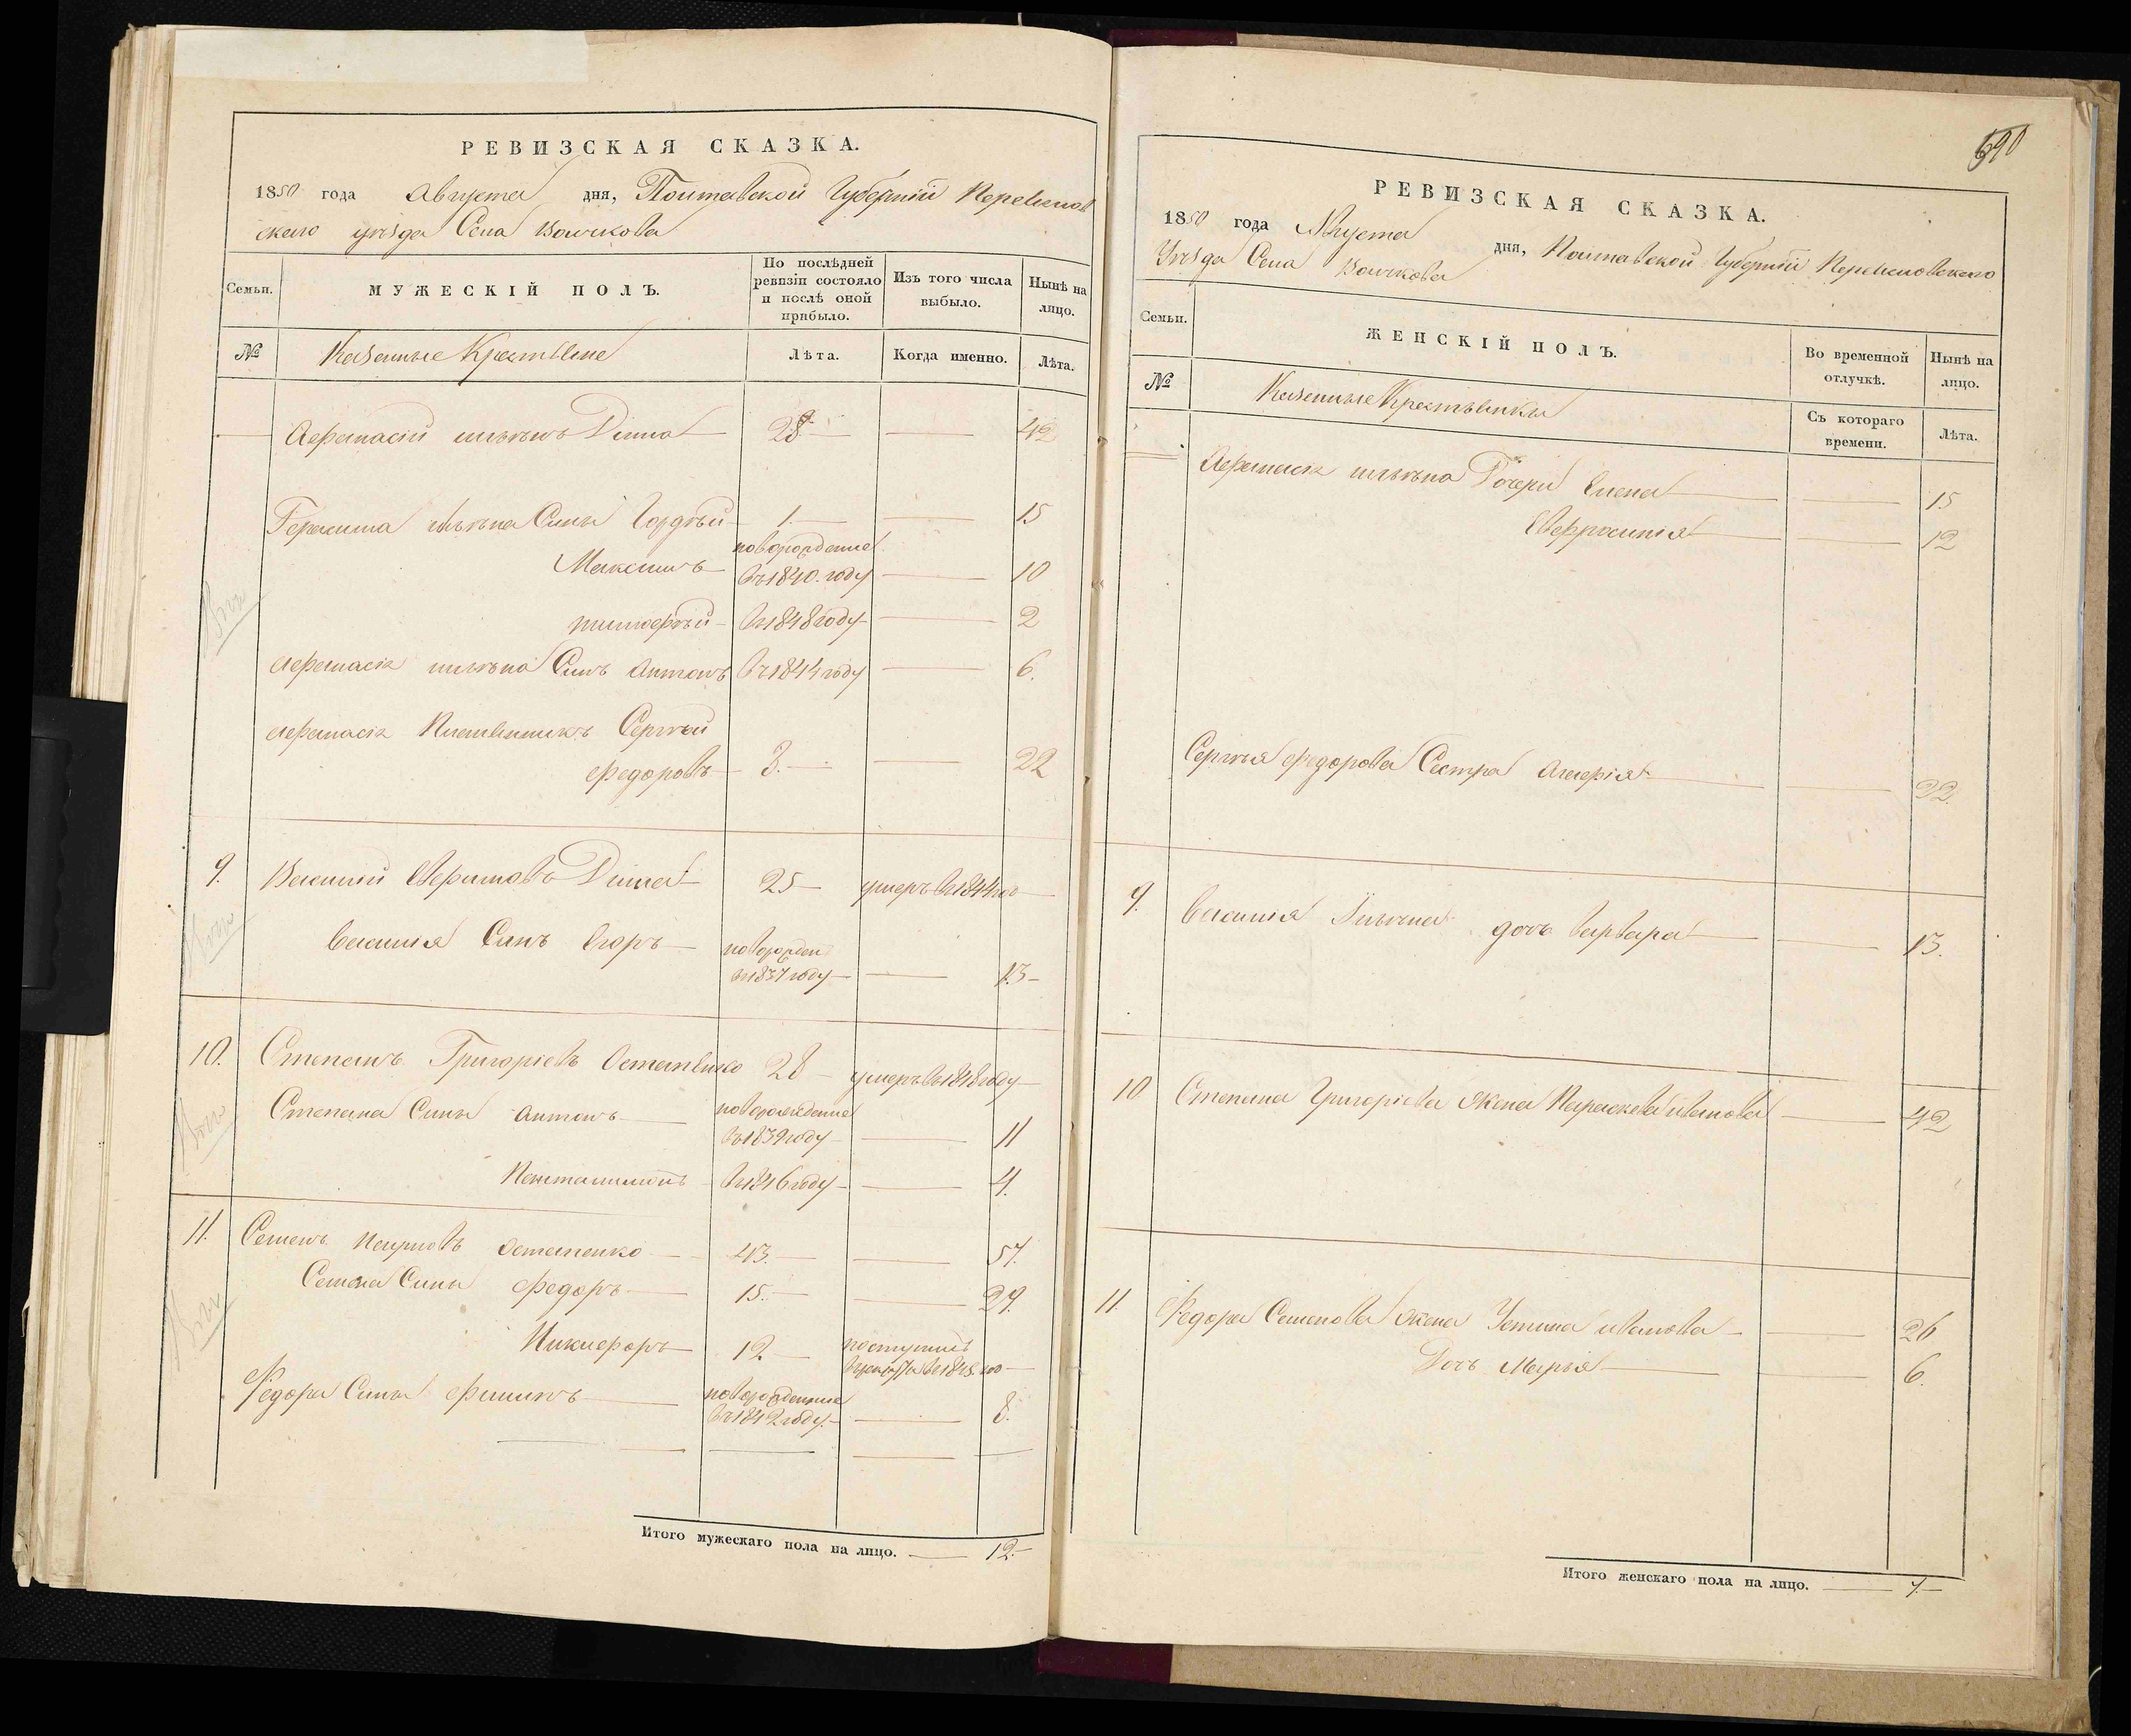 РЕВИЗСКАЯ СКАЗКА.
1850 года Августа дня, Полтавской Губерніи Переяслов
скаго уѣзда Села Вовчкова
Семьи.
МУЖЕСКІЙ ПОЛЪ.
По послѣдней ревизіи состояло и послѣ оной прибыло.
Изъ того числа выбыло.
Нынѣ на лицо.
№ Казенные Крестьяне Лѣта. Когда именно. Лѣта.
Афанасій Дима 28 42
Герасима Сыны Гордѣй 1. 15
новорожденные
Максимъ въ 1840. году 10
тимофѣй въ 1848 году 2
Афанасія Сынъ Антонъ въ 1844 году 6.
Афанасія Племянникъ Сергѣй
Федоровъ 3. 22
9. Василий Дима 25 умеръ в 1844 го
Василія Сынъ Егоръ новорожден
в 1837 году 13
10. Степанъ Григоріевъ Остапенко 28 умеръ в 1848 году
Степана Сыны Антонъ новорожденные
въ 1839 году 11
Пантилимонъ в 1846 году 4.
11. Семенъ Остапенко 43. 57.
Семена Сыны Федоръ 15. 29.
Никифоръ 12 поступилъ
в рекруты в 1845. го
Федора Сыны Филипъ новорожденные
въ 1842 году. 8.
Итого мужескаго пола на лицо. 12.
690
РЕВИЗСКАЯ СКАЗКА.
1850 года Августа дня, Полтавской Губерніи Переясловскаго
Уѣзда Села Вовчкова
Семьи.
ЖЕНСКІЙ ПОЛЪ.
Во временной отлучкѣ.
Нынѣ на лицо.
№ Казенные Крестьянки Съ котораго времени. Лѣта.
Афанасія Дочери Елена 15
Евфросинія 12
Сергѣя Федорова Сестра Агафія 22.
9. Василія дочь Варвара 13.
10 Степана Григоріева Жена Параскева иванова 42
11. Федора Семенова Жена Устина иванова 26
Дочь Марья 6.
Итого женскаго пола на лицо. 7.